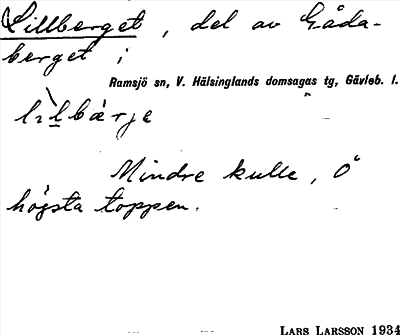 Lillberget, del av Gåda-
berget i
Ramsjö sn, V. Hälsinglands domsagas tg, Gävleb. l.
Mindre kulle, Ö
högsta toppen.
LARS LARSSON 1934